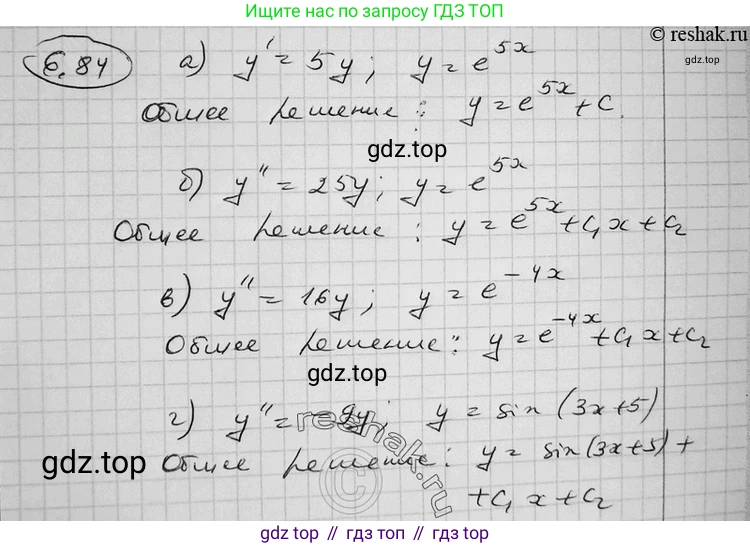 Ищите нас по запросу ГДЗ ТОП
© reshak.ru
6.84 а) y' = 5y; y = e^{5x}
Общее решение: y = e^{5x} + C.
gdz.top
б) y'' = 25y; y = e^{5x}
Общее решение: y = e^{5x} + C₁x + C₂
в) y'' = 16y; y = e^{-4x}
Общее решение: y = e^{-4x} + C₁x + C₂
gdz.top
г) y'' = -9y; y = sin (3x+5)
reshak.ru
gdz.top
Общее решение: y = sin(3x+5) +
+ C₁x + C₂
gdz top // гдз топ // gdz top // гдз топ